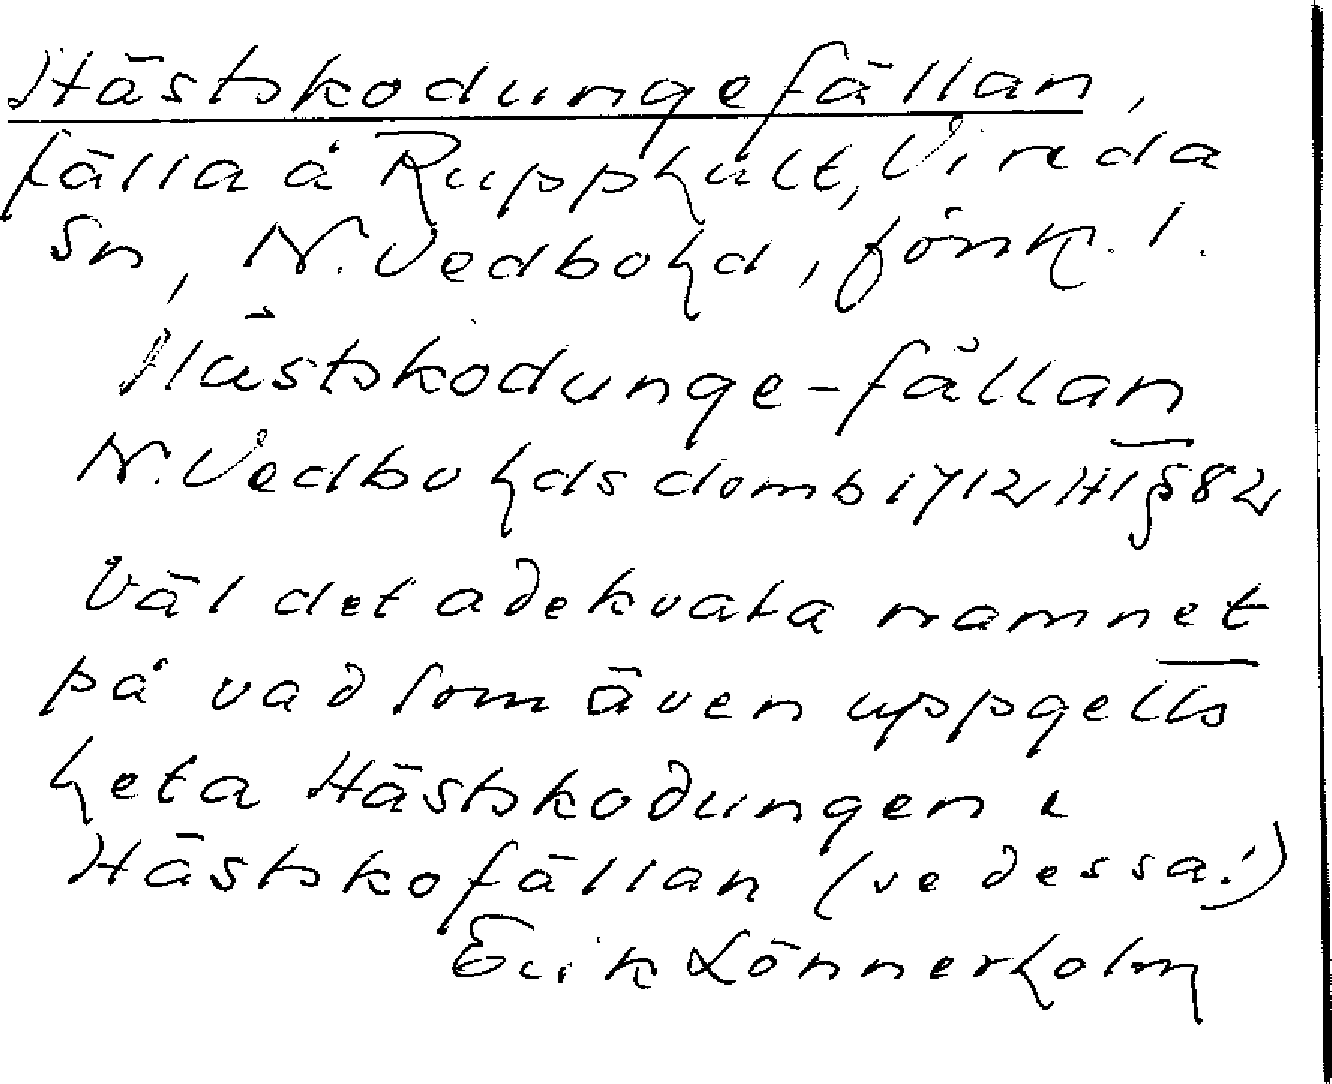 Hästskodungefällan,
fälla å Rupphult, Vireda
Sn, N. Vedbohd, Jönk. l.
Hästskodunge-fällan
N. Vedbohds domb 1712 H1 § 82
Väl det adekvata namnet
på vad som även uppgetts
heta Hästskodungen l
Hästskofällan (se dessa!)
Erik Lönnerholm